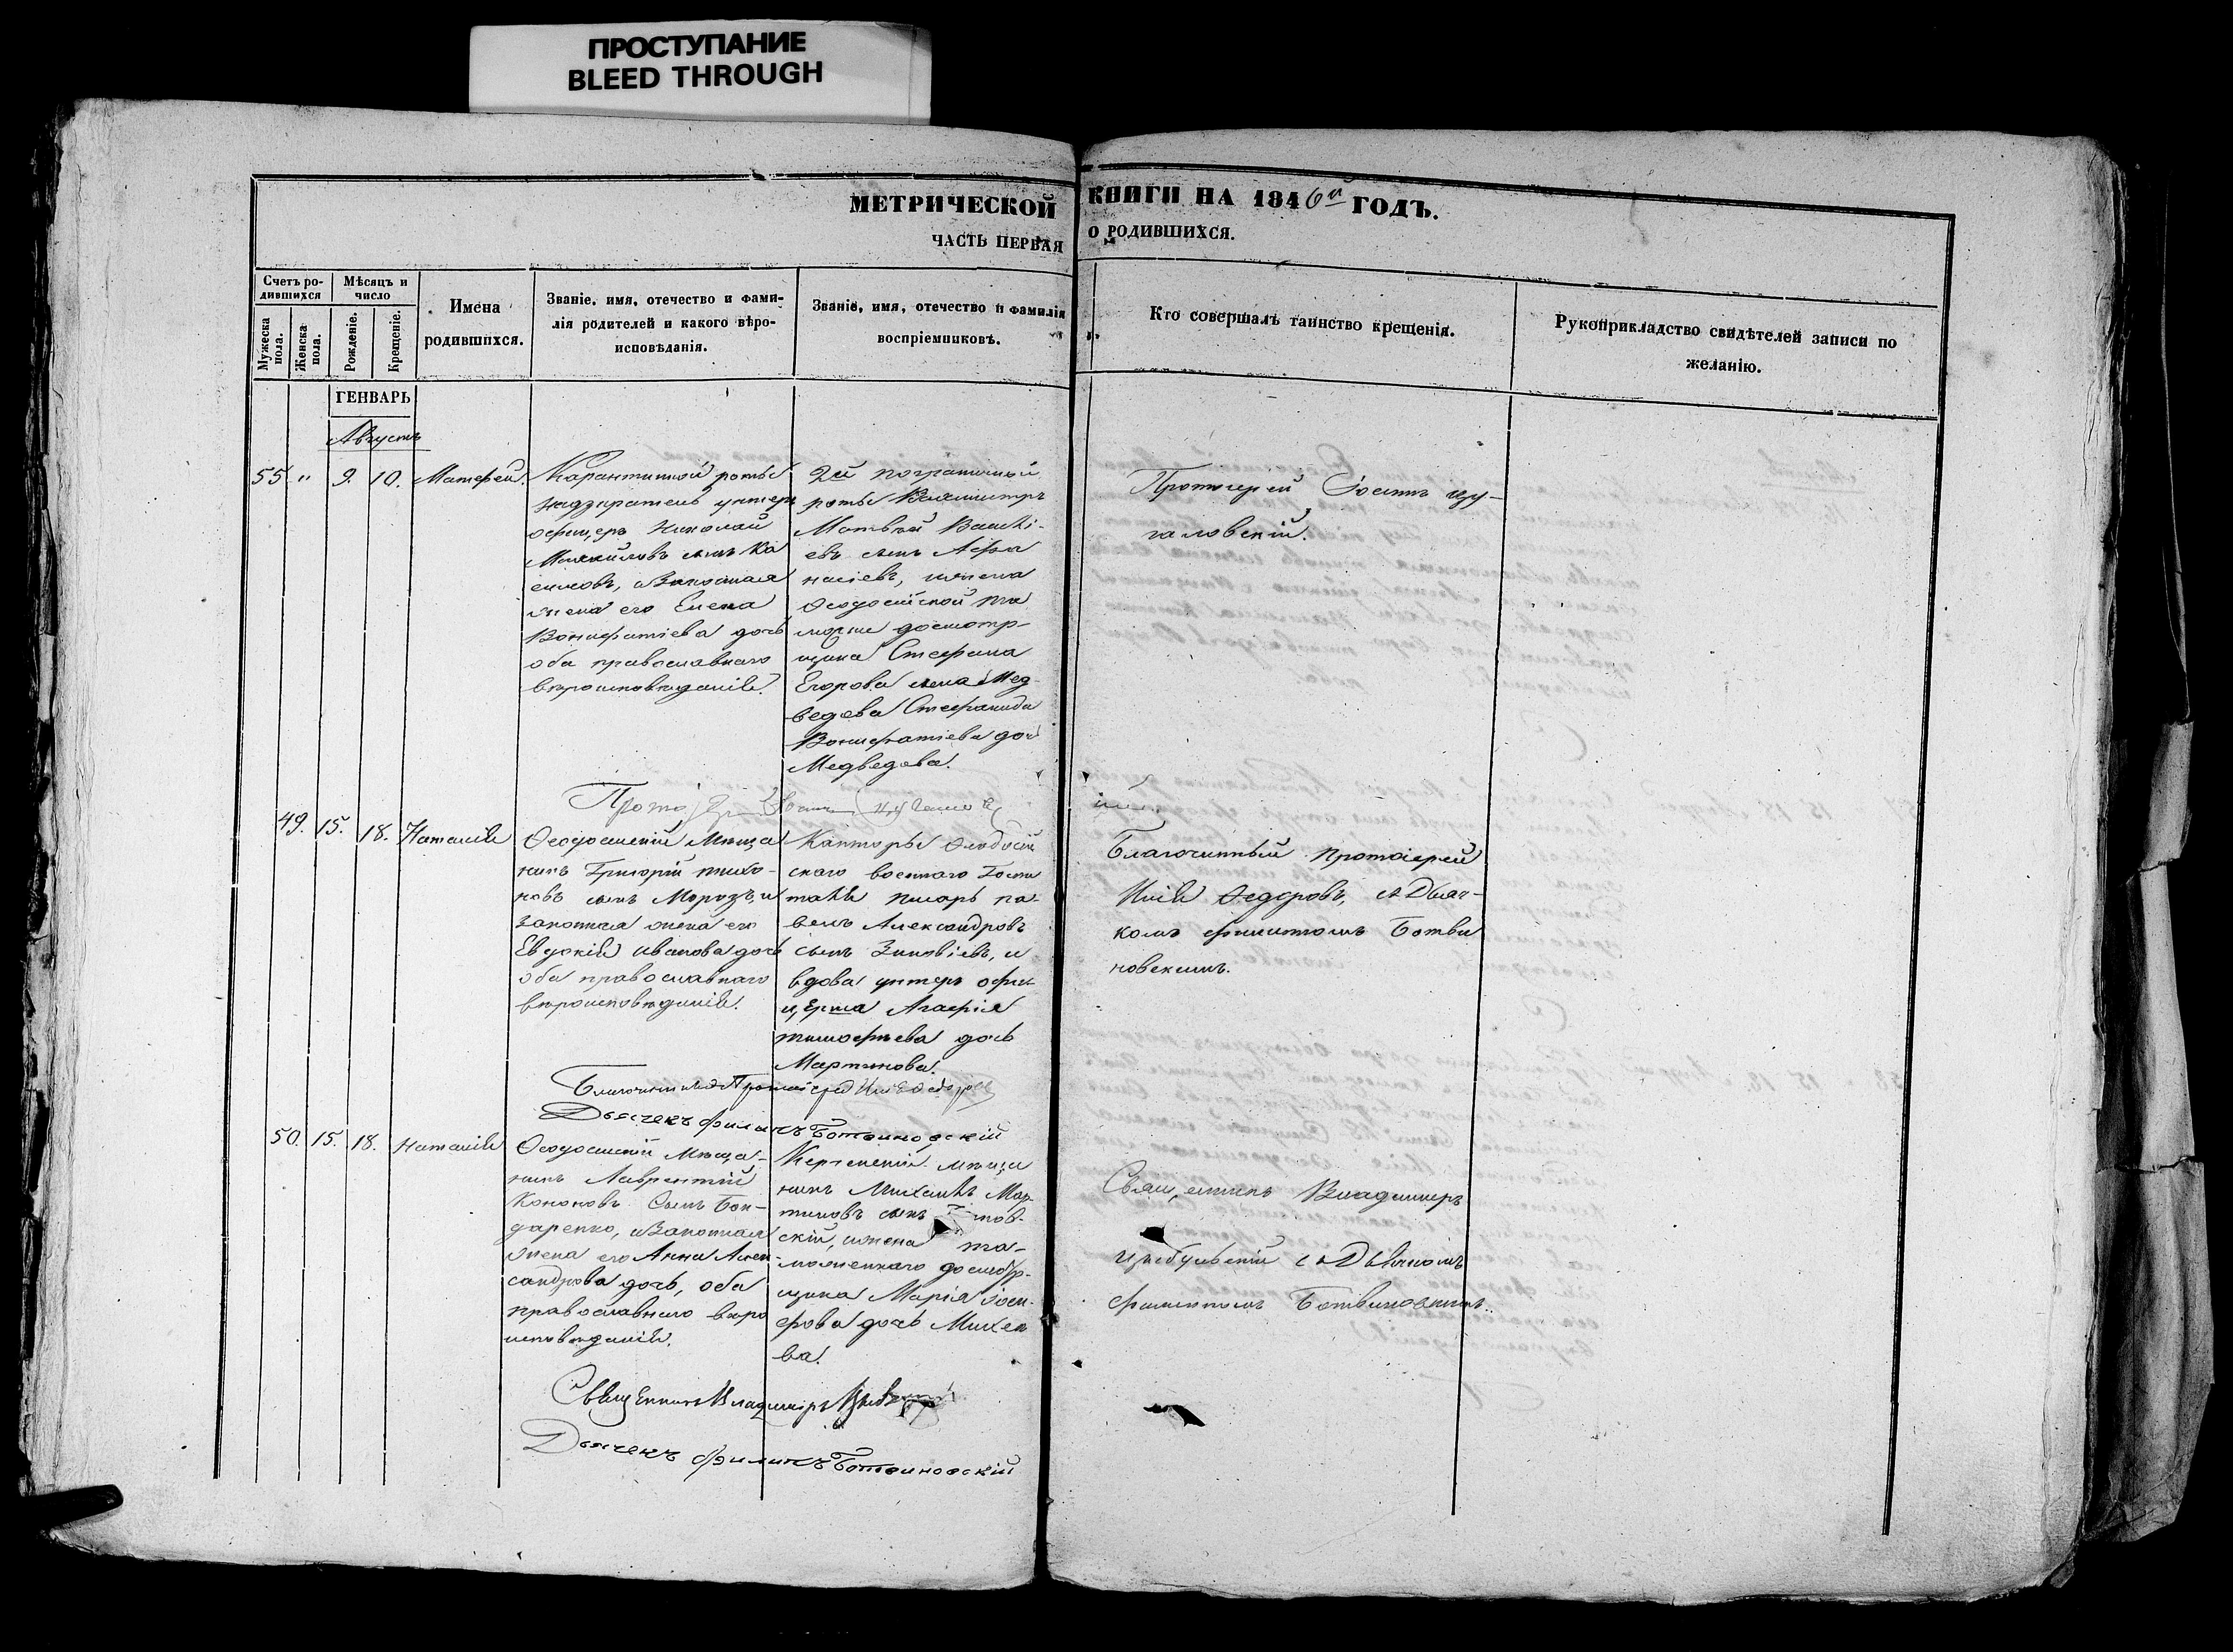 ПРОСТУПАНИЕ
BLEED THROUGH
МЕТРИЧЕСКОЙ КНИГИ НА 1846й ГОДЪ.
ЧАСТЬ ПЕРВАЯ О РОДИВШИХСЯ.
Счетъ ро-
дившихся
Мужеска
пола.
Женска
пола.
Мѣсяцъ и
число
Рожденіе.
Крещеніе.
Имена
родившихся.
Званіе, имя, отечество и фами-
лія родителей и какого вѣро-
исповѣданія.
Званіе, имя, отечество и фамилія
воспріемниковъ.
Кто совершалъ таинство крещенія.
Рукоприкладство свидѣтелей записи по
желанію.
ГЕНВАРЬ
Августъ
55 " 9. 10. Матфей.
Карантинной роты
надзиратель унтеръ
офицеръ Николай
сынъ Ка
симовъ, и законная
жена его Елена
Вонифатіева дочь
оба православнаго
вѣроисповѣданія.
2й пограничной
роты Вахмистръ
Матвей
евъ сынъ Афа
насіевъ, и жена
Ѳеодосійской та
можни досмотр-
щика Стефана
Егорова сына Мед-
ведева Стефанида
Вонифатіева доч
Медведева.
Протоіерей Іоаннъ Цу-
галовскій.
49. 15. 18. Наталія
Ѳеодосійскій Мѣща
нинъ Григорій Тихо-
новъ сынъ Морозъ, и
законная жена его
Евдокія Иванова дочь
оба православнаго
вѣроисповѣданія.
Канторы Ѳеодосій
скаго военнаго Госпи
таля писарь Па-
велъ Александровъ
сынъ Зиновіевъ, и
вдова унтеръ офи-
церша Агафія
Тимофѣева дочь
Мартинова.
Благочинный Протоіерей
Илія Ѳедоровъ, съ Дьяч-
комъ Филиппомъ Ботви
новскимъ.
Благочинный Протоіерей Илія Ѳедоровъ
Дьячекъ Филипъ Ботвиновскій
50. 15. 18. Наталія
Ѳеодосійскій Мѣща-
нинъ Лаврентій
Кононовъ Сынъ Бон-
даренко, и Законная
жена его Анна Алек-
сандрова дочь, оба
православнаго вѣро
исповѣданія.
Керченскій мѣща
нинъ Михаилъ Мар
тиновъ сынъ
скій, и жена та-
моженнаго досмотр-
щика Марія Іоси-
фова дочь Михее
ва.
Священникъ Владимиръ
съ Дьячкомъ
Филиппомъ Ботвиновскимъ.
Священникъ Владимиръ
Дьячекъ Филипъ Ботвиновскій